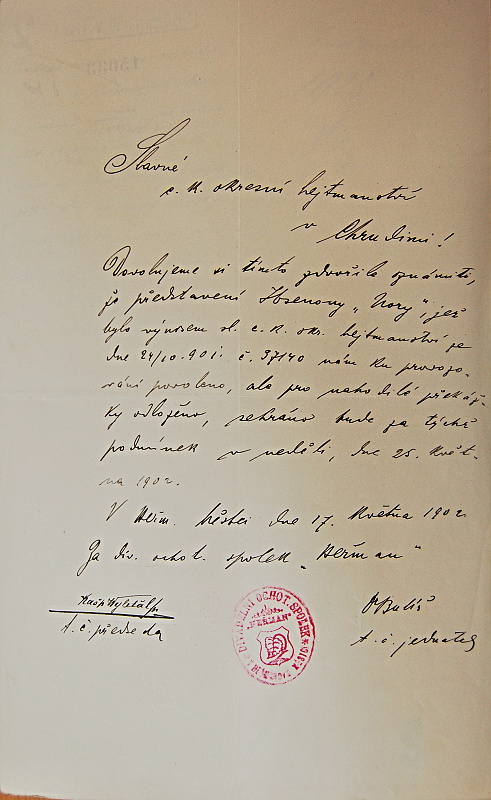 Slavné
c. k. okresní hejtmanství
v Chrudimi!
Dovolujeme si tímto zdvořile oznámiti,
že představení Ibsenovy „Nory“, jež
bylo výnosem sl. c. k. okr. hejtmanství ze
dne 24/10. 901. č. 37140 nám ku provozo-
vání povoleno, ale pro nahodilé překáž-
ky odloženo, sehráno bude za týchž
podmínek v neděli, dne 25. květ-
na 1902.
V Heřm. Městci dne 17. května 1902
Za div. ochot. spolek „Heřman“
t. č. předseda
DIVADELNÍ OCHOT. SPOLEK
"HEŘMAN"
t. č. jednatel